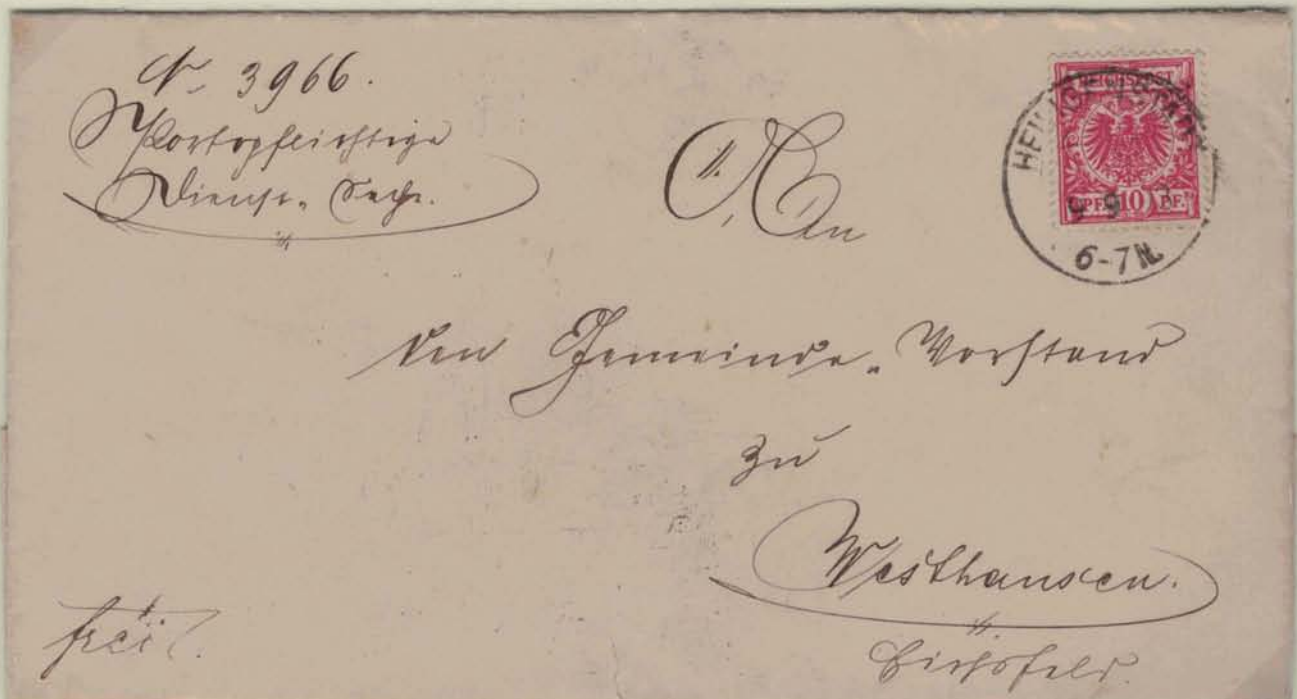 No 3966.
Portopflichtige
Dienst-Sache.
An
den Gemeinde-Vorstand
zu
Westhausen.
Eichsfeld.
frei
REICHSPOST
PF. 10 PF.
9 9
6-7 N.